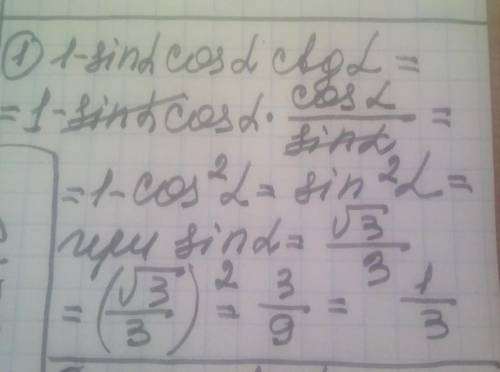 ① 1-sinα cosα ctgα =
= 1 - sinα cosα · cosα/sinα =
= 1 - cos²α = sin²α =
при sinα = √3/3
= (√3/3)² = 3/9 = 1/3